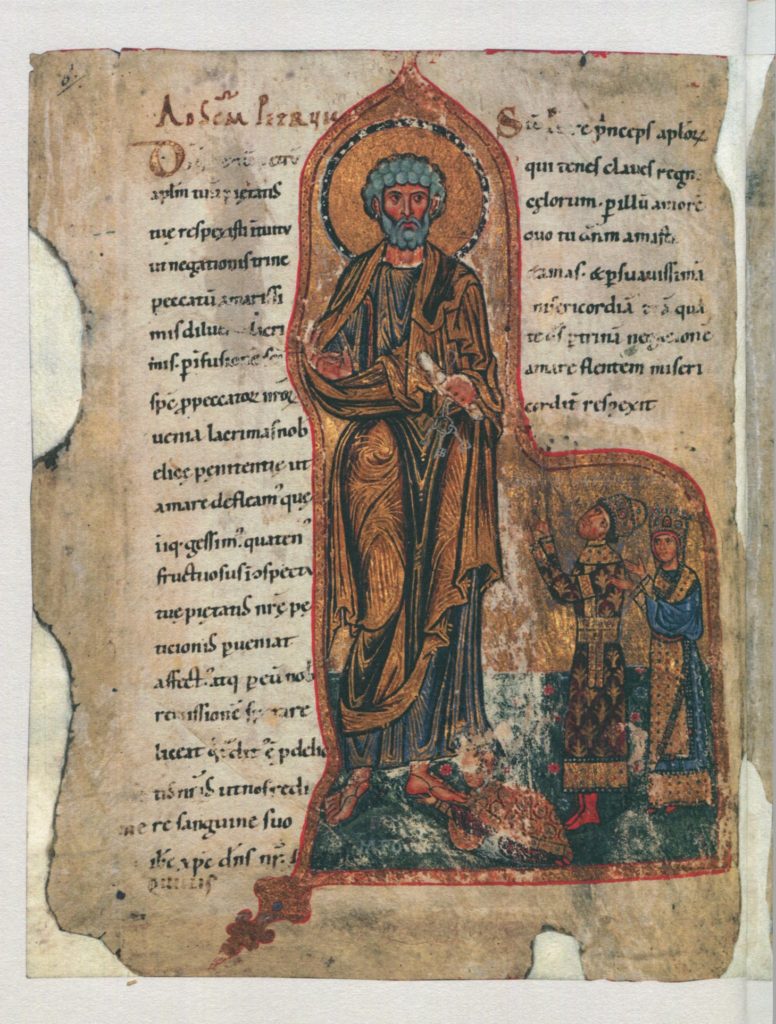 Ad scm Petrum
aplm tuũ pietatis
tuę respexisti ĩtuitu
ut negationis trine
peccatũ amarissi
mis diluit lacri
mis. p infusionẽ
spẽ p peccatoꝝ nr̃oꝝ
uenia lacrimas nob
elice penitentie ut
amare defleam' quę
iniq; gessim' quaten'
fructuosus ĩ cspectu
tuę pietatis nr̃ę pe
ticionis pueniat
affect' atq; p eũ nob
remissionẽ sperare
liceat p delic
tis nr̃is ut nos redi
mere sanguine suo
ihc xpc dns nr̃.
Scẽ Petre p̃nceps aplorꝝ
qui tenes claues regni
cęlorum. p illũ amorẽ
quo tu dñm amasti
& amas. & p suauissimã
misericordiã suã qua
te ds p trinã negatione
amare flentem miseri
corditer respexit